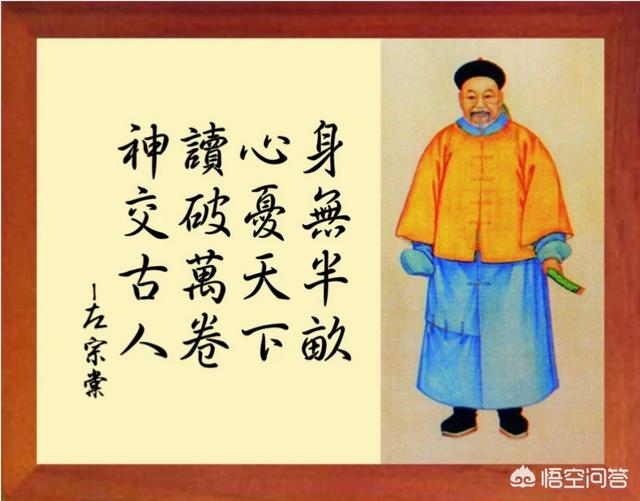 身無半畝
心憂天下
讀破萬卷
神交古人
—左宗棠
悟空问答